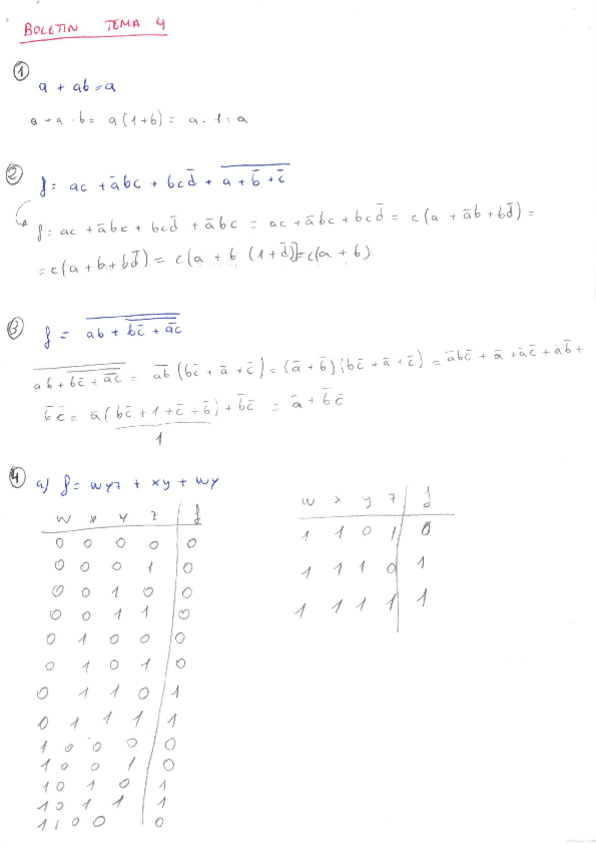 BOLETIN TEMA 4
①
a + ab = a
a + a · b = a(1+b) = a · 1 = a
② f = ac + a̅bc + bcd̅ + \overline{a + b̅ + c̅}
f = ac + a̅bc + bcd̅ + a̅bc = ac + a̅bc + bcd̅ = c(a + a̅b + bd̅) =
= c(a + b + bd̅) = c(a + b (1+d̅)] = c(a + b)
③ f = \overline{ab + \overline{bc̅ + \overline{ac}}}
\overline{ab + \overline{bc̅ + \overline{ac}}} = \overline{ab} (bc̅ + a̅ + c̅) = (a̅ + b̅)(bc̅ + a̅ + c̅) = a̅bc̅ + a̅ + a̅c̅ + a̅b̅ +
b̅c̅ = a̅(bc̅ + 1 + c̅ + b̅) + b̅c̅ = a̅ + b̅c̅
1
④ a) f = wyz + xy + wy
w x y z f
0 0 0 0 0
0 0 0 1 0
0 0 1 0 0
0 0 1 1 0
0 1 0 0 0
0 1 0 1 0
0 1 1 0 1
0 1 1 1 1
1 0 0 0 0
1 0 0 1 0
1 0 1 0 1
1 0 1 1 1
1 1 0 0 0
w x y z f
1 1 0 1 0
1 1 1 0 1
1 1 1 1 1